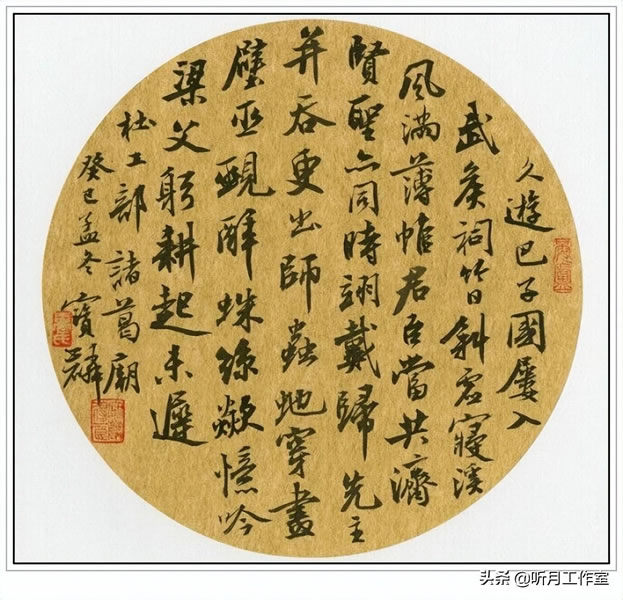 久遊巴子國屢入
武侯祠竹日斜虛寢溪
風滿薄帷君臣當共濟
賢聖亦同時翊戴歸先主
并吞更出師蟲虵穿畫
壁巫覡醉蛛絲欻憶吟
梁父躬耕起未遲
杜工部諸葛廟
癸巳孟冬寶麟
头条 @听月工作室